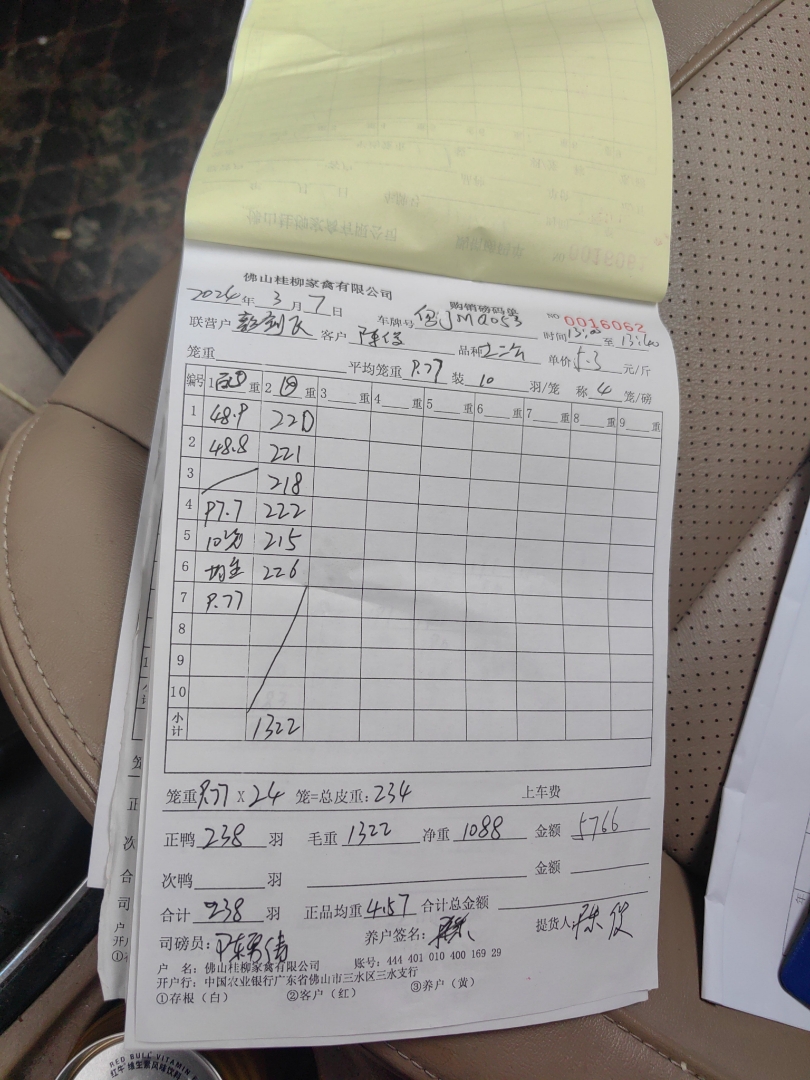 佛山桂柳家禽有限公司
购销磅码单
NO 0016062
2024年 3月 7日
车牌号 JMQ053
时间 13:00 至 13:40
联营户
客户 陈俊
品种
单价 5.3 元/斤
笼重 平均笼重 9.77 装 10 羽/笼 称 4 笼/磅
编号 1 重 2 重 3 重 4 重 5 重 6 重 7 重 8 重 9 重
1 48.9 220
2 48.8 221
3 218
4 97.7 222
5 10笼 215
6 均重 226
7 9.77
8
9
10
小计 1322
笼重 9.77 X 24 笼=总皮重: 234 上车费
正鸭 238 羽 毛重 1322 净重 1088 金额 5766
次鸭 羽 金额
合计 238 羽 正品均重 4.57 合计总金额
司磅员: 养户签名: 提货人: 陈俊
户 名: 佛山桂柳家禽有限公司 账号: 444 401 010 400 169 29
开户行: 中国农业银行广东省佛山市三水区三水支行
①存根(白) ②客户(红) ③养户(黄)
RED BULL VITAMIN
红牛 维生素风味饮料